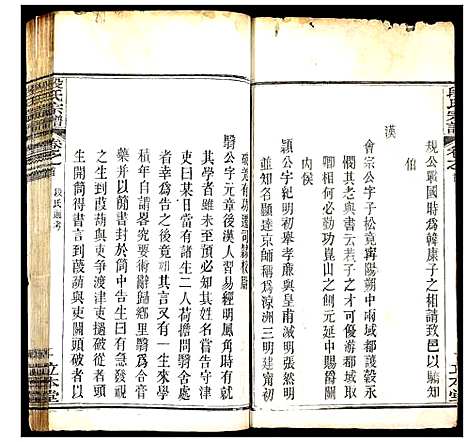 段氏宗譜
規公戰國時爲韓康子之相請致邑以驕知
伯
漢
會宗公字子松竟寧陽朔中兩域都護谷永
憫其老與書云若子之才可優游都城取
卿相何必勒功崑山之側元延中賜爵關
內侯
熲公字紀明初舉孝廉與皇甫威明張然明
並知名顯達京師稱爲涼洲三明建寧初
立本堂
破羌有功還司隸校尉
翳公字元章後漢人習易經明風角時有就
其學者雖未至預必知其名嘗告守津
吏曰某日當有諸生二人荷擔問翳舍處
者幸爲告之後竟如其言又有一生來學
積年自謂畧究要術辭歸鄉里翳公爲合膏
藥并以簡書封於筒中告生曰有急發視
之生到葭萌與吏爭渡津吏撾破從者頭
生開筒得書言到葭萌與吏鬬頭破者以
段氏宗譜
卷之首
段氏源考
一
立本堂